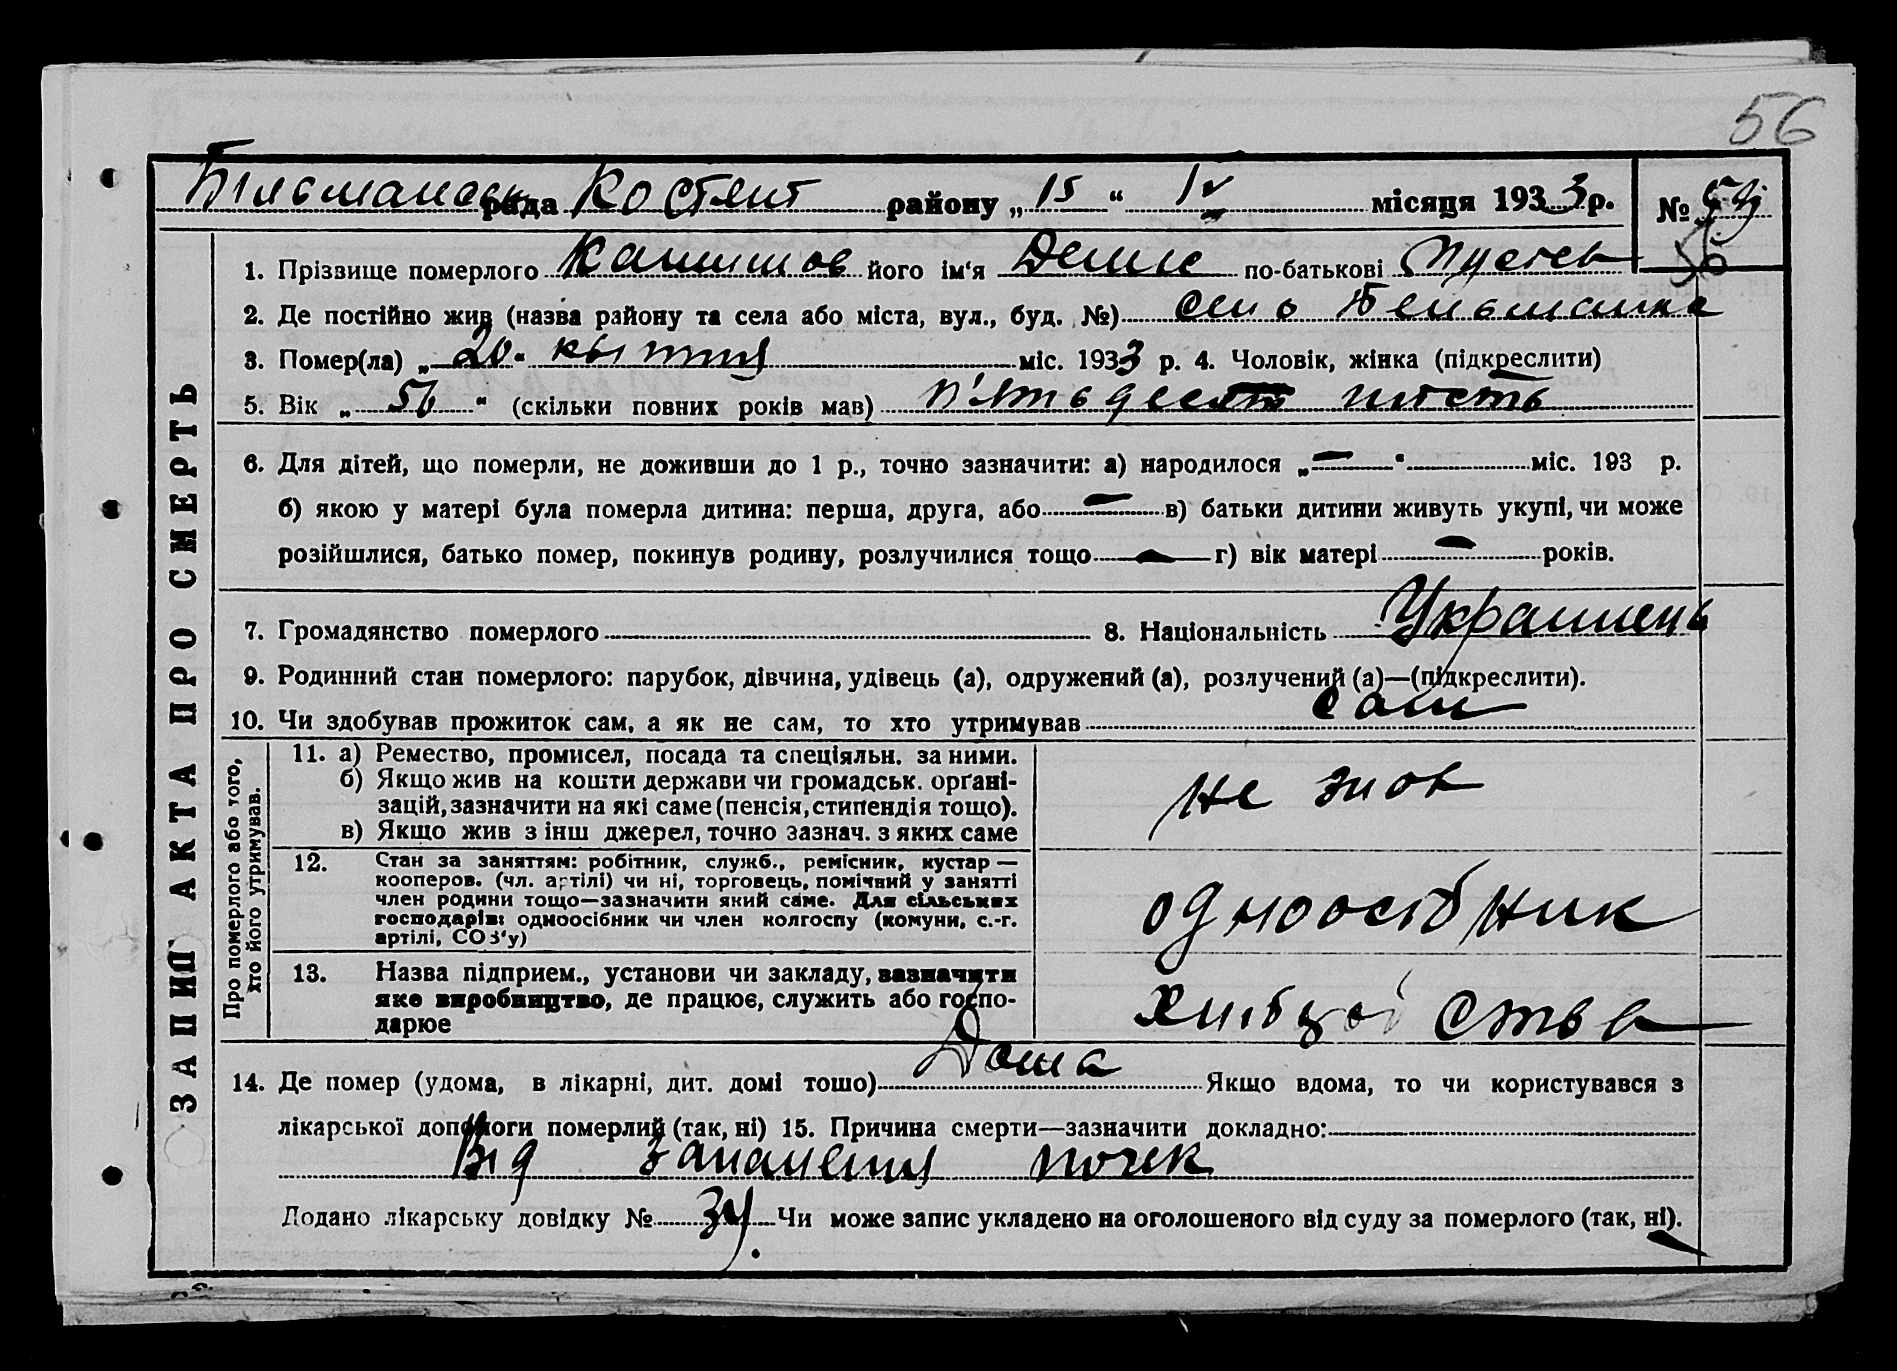 56
Бильманськ рада Костянт району „ 15 “ IV місяця 1933 р. №
56
1. Прізвище померлого його ім'я Денис по-батькові
2. Де постійно жив (назва району та села або міста, вул., буд. №) село Бельманка
3. Помер(ла) „ 20 “ міс. 1933 р. 4. Чоловік, жінка (підкреслити)
5. Вік „ 56 “ (скільки повних років мав) п'ятьдесят шість
6. Для дітей, що померли, не доживши до 1 р., точно зазначити: а) народилося „ — “ міс. 193 р.
б) якою у матері була померла дитина: перша, друга, або — в) батьки дитини живуть укупі, чи може
розійшлися, батько помер, покинув родину, розлучилися тощо — г) вік матері — років.
7. Громадянство померлого 8. Національність Украинець
9. Родинний стан померлого: парубок, дівчина, удівець (а), одружений (а), розлучений (а)—(підкреслити).
10. Чи здобував прожиток сам, а як не сам, то хто утримував сам
ЗАПИС АКТА ПРО СМЕРТЬ
Про померлого або того, хто його утримував.
11. а) Ремество, промисел, посада та спеціяльн. за ними.
б) Якщо жив на кошти держави чи громадськ. органі-
зацій, зазначити на які саме (пенсія, стипендія тощо).
в) Якщо жив з інш джерел, точно зазнач. з яких саме
не знов
12. Стан за заняттям: робітник, служб., ремісник, кустар —
кооперов. (чл. артілі) чи ні, торговець, помічний у занятті
член родини тощо—зазначити який саме. Для сільських
господарів: одноосібник чи член колгоспу (комуни, с.-г.
артілі, СОЗ'у)
одноосібник
13. Назва підприєм., установи чи закладу, зазначити
яке виробництво, де працює, служить або госпо-
дарює
ства
14. Де помер (удома, в лікарні, дит. домі тошо) Дома Якщо вдома, то чи користувався з
лікарської допомоги померлий (так, ні) 15. Причина смерти—зазначити докладно:
Від запаления почек
Додано лікарську довідку № 34. Чи може запис укладено на оголошеного від суду за померлого (так, ні).